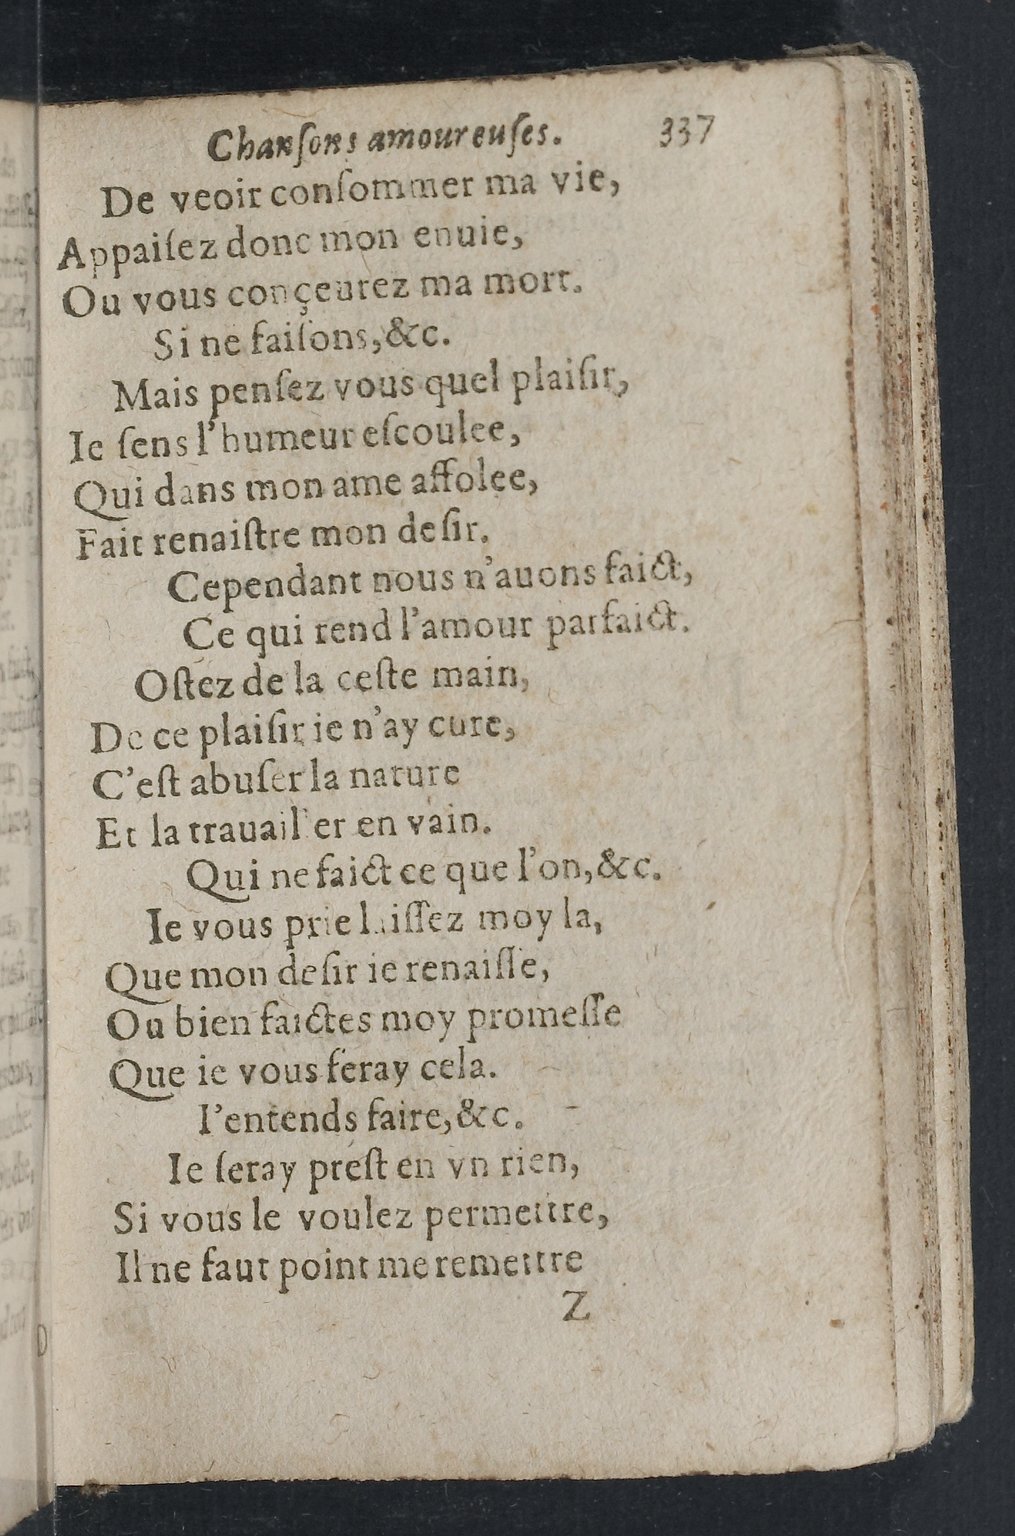 Chanſons amoureuſes. 337
De veoir conſommer ma vie,
Appaiſez donc mon enuie,
Ou vous conçeurez ma mort.
Si ne faiſons, &c.
Mais penſez vous quel plaiſir,
Ie ſens l'humeur eſcoulee,
Qui dans mon ame affolee,
Fait renaiſtre mon deſir.
Cependant nous n'auons faict,
Ce qui rend l'amour parfaict.
Oſtez de la ceſte main,
De ce plaiſir ie n'ay cure,
C'eſt abuſer la nature
Et la trauailler en vain.
Qui ne faict ce que l'on, &c.
Ie vous prie laiſſez moy la,
Que mon deſir ie renaiſſe,
Ou bien faictes moy promeſſe
Que ie vous feray cela.
I'entends faire, &c.
Ie ſeray preſt en vn rien,
Si vous le voulez permettre,
Il ne faut point me remettre
Z